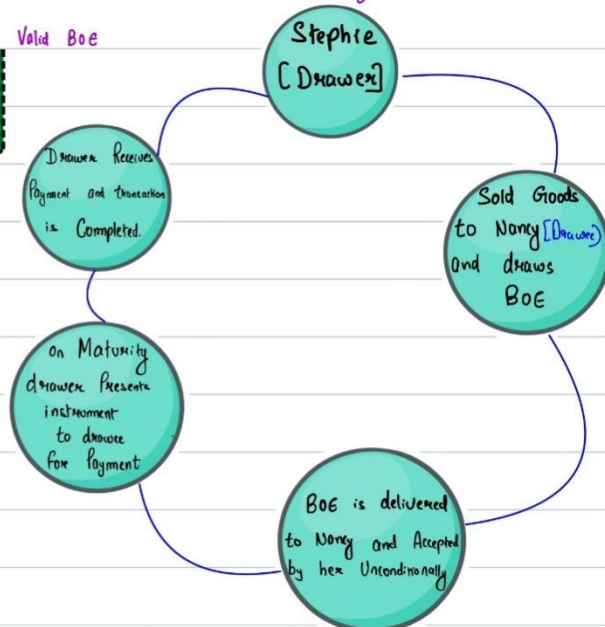 Valid BOE
Stephie
[Drawer]
Sold Goods
to Nancy [Drawee)
and draws
BOE
BOE is delivered
to Nancy and Accepted
by her Unconditionally
On Maturity
drawer Presents
instrument
to drawee
for Payment
Drawer Receives
Payment and trancation
is Completed.